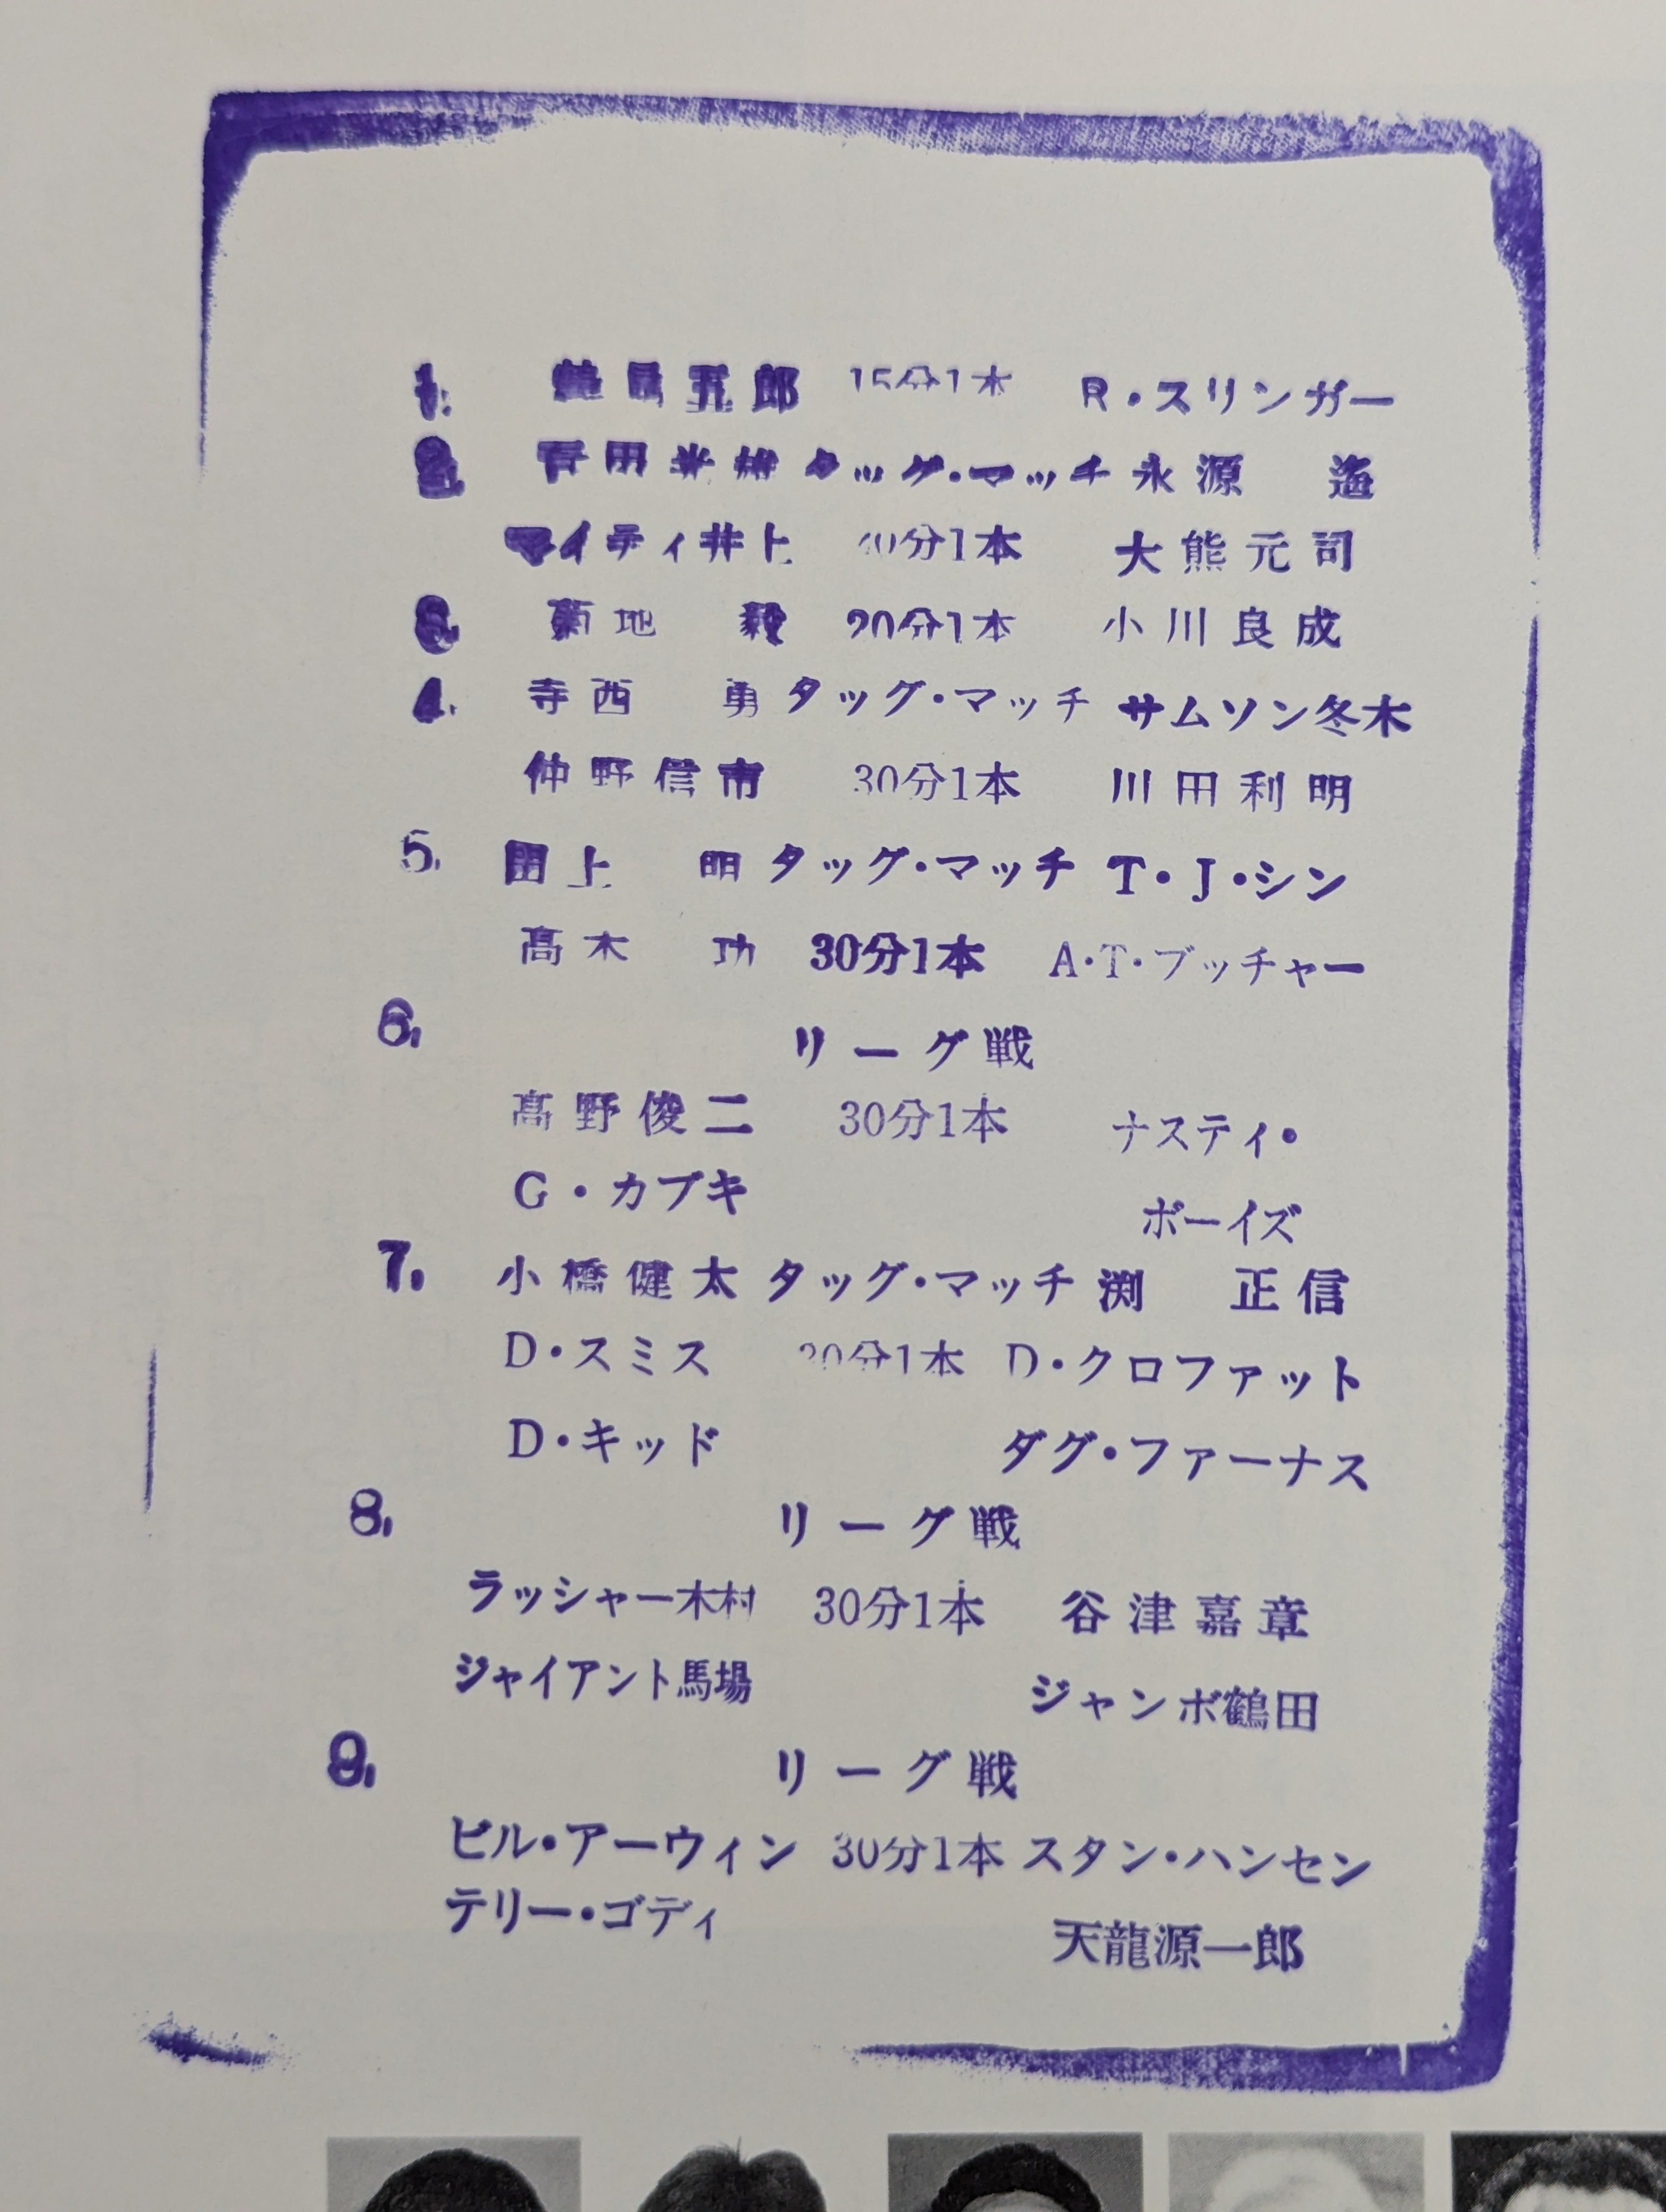 1. 鶴見五郎 15分1本 R・スリンガー
2. 百田光雄 タッグ・マッチ 永源 遙
マイティ井上 分1本 大熊元司
3. 菊地 毅 20分1本 小川良成
4. 寺西 勇 タッグ・マッチ サムソン冬木
仲野信市 30分1本 川田利明
5. 田上 明 タッグ・マッチ T・J・シン
高木 功 30分1本 A・T・ブッチャー
6. リーグ戦
高野俊二 30分1本 ナスティ・
G・カブキ ボーイズ
7. 小橋健太 タッグ・マッチ 渕 正信
D・スミス 30分1本 D・クロファット
D・キッド ダグ・ファーナス
8. リーグ戦
ラッシャー木村 30分1本 谷津嘉章
ジャイアント馬場 ジャンボ鶴田
9. リーグ戦
ビル・アーウィン 30分1本 スタン・ハンセン
テリー・ゴディ 天龍源一郎